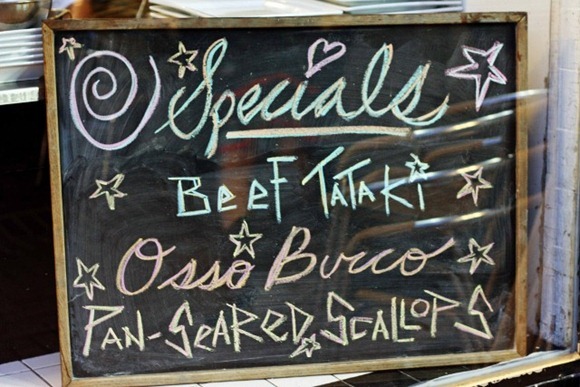 Specials
Beef Tataki
Osso Bucco
Pan-Seared Scallops